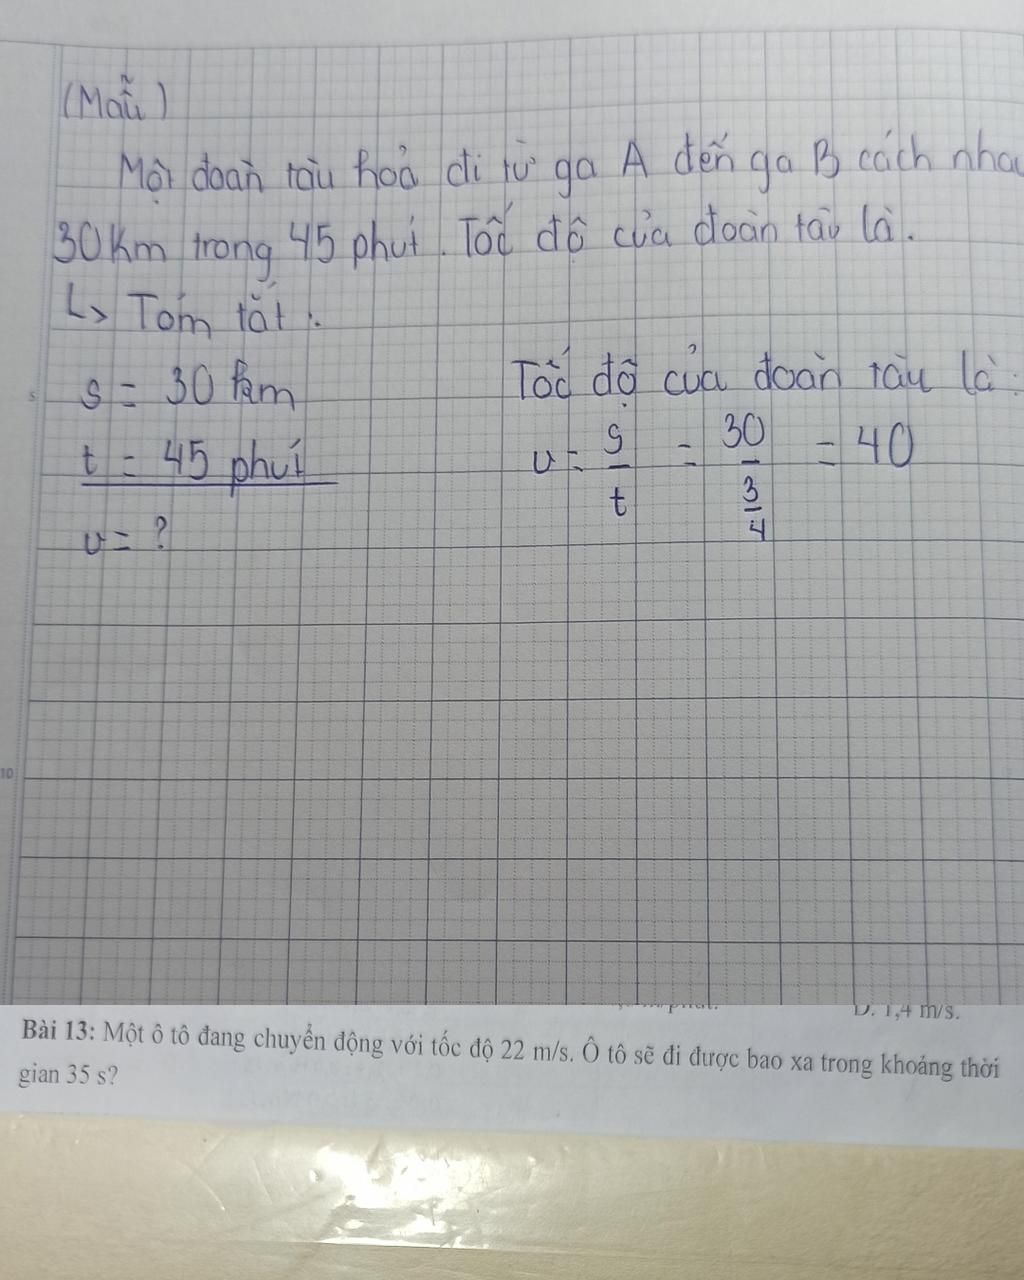 (Mẫu)
Một đoàn tàu hoả đi từ ga A đến ga B cách nha
30Km trong 45 phút. Tốc độ của đoàn tàu là.
↳ Tóm tắt:
s = 30 km
t = 45 phút
v = ?
Tốc độ của đoàn tàu là:
v = s/t = 30/(3/4) = 40
5
10
D. 1,4 m/s.
Bài 13: Một ô tô đang chuyển động với tốc độ 22 m/s. Ô tô sẽ đi được bao xa trong khoảng thời
gian 35 s?